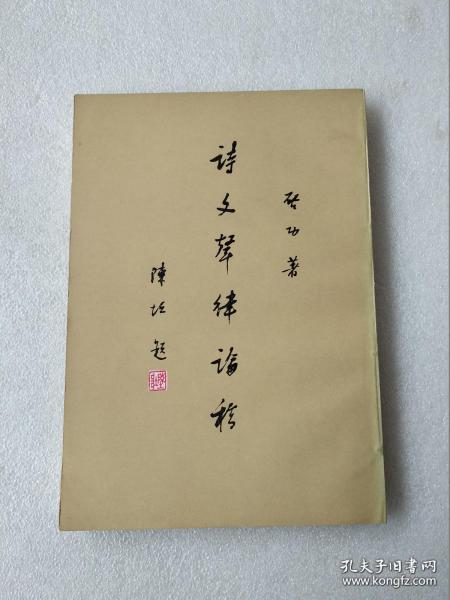 啓功著
詩文聲律論稿
陳垣題
孔夫子旧书网
www.kongfz.com